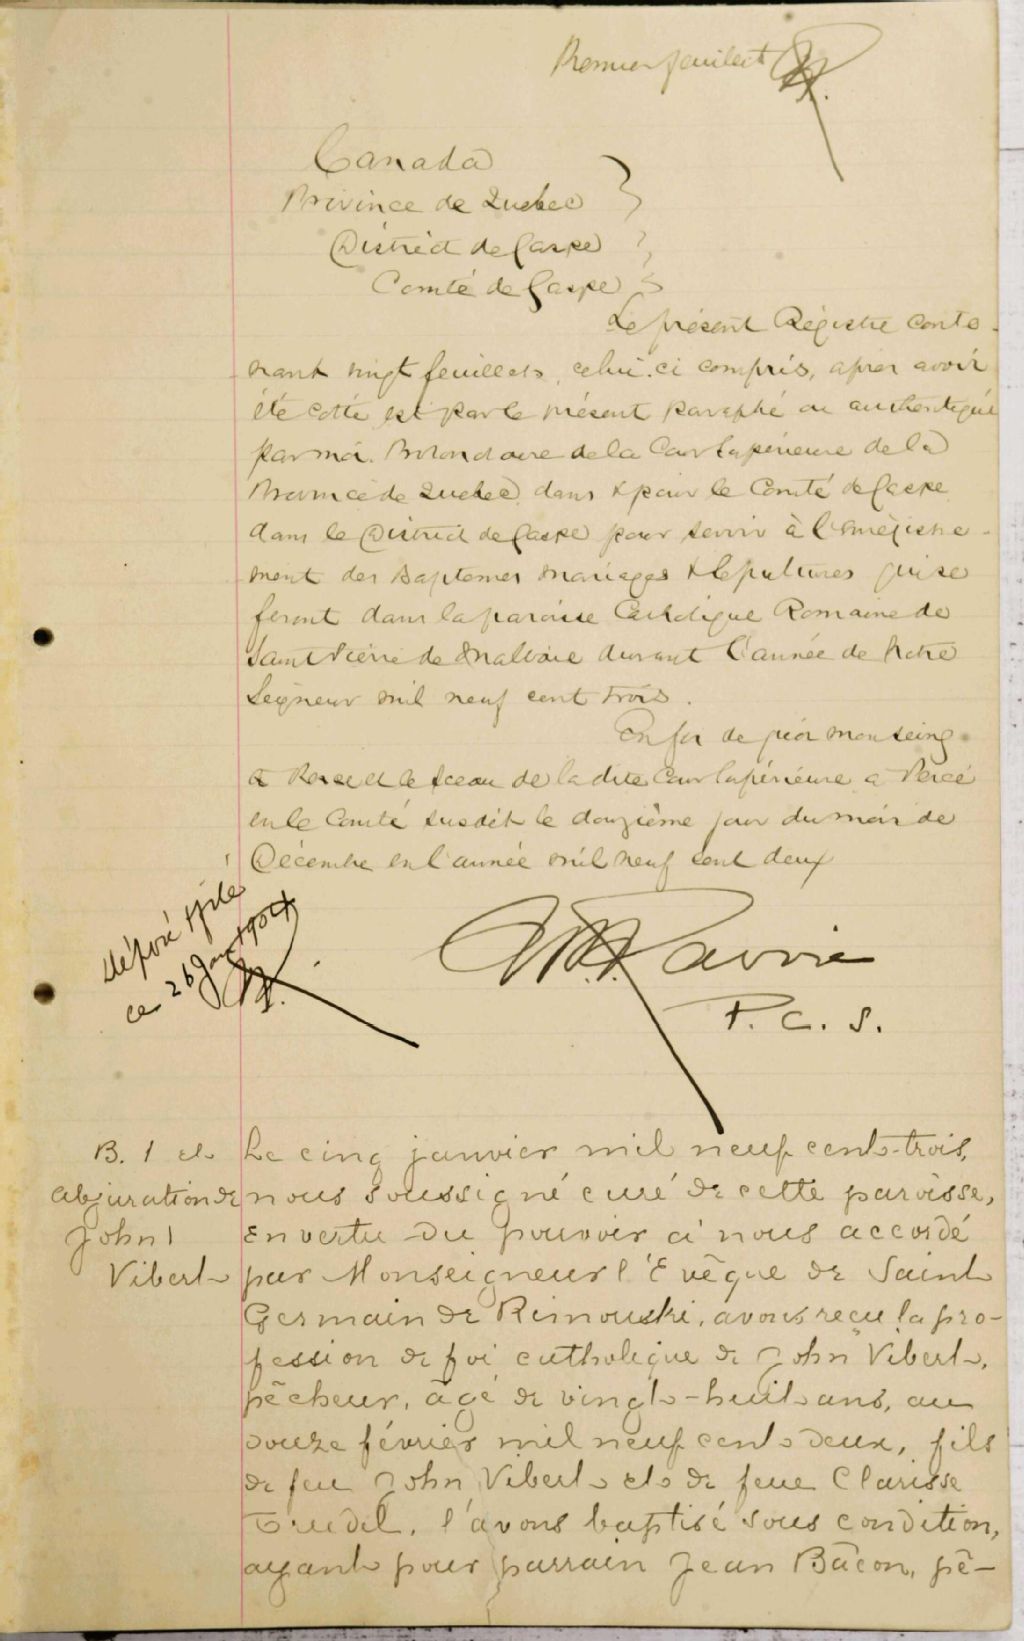 Premier feuillet
Canada
Province de Quebec
District de Gaspe
Comté de Gaspe
Le présent Régistre conte-
nant vingt feuillets, celui-ci compris, apres avoir
été cotté est par le présent paraphé ou authentiqué
par moi. Protonotaire de la Cour Supérieure de la
Province de Quebec dans & pour le Comté de Gaspe
dans le District de Gaspe pour servir à l'enrégistre-
ment des Baptemes Mariages & Sepultures qui se
feront dans la paroisse Catholique Romaine de
Saint Pierre de Malbaie durant l'année de Notre
Seigneur mil neuf cent trois.
En foi de quoi mon seing
& le sceau de la dite Cour Supérieure a Percé
en le Comté susdit le douzième jour du mois de
Décembre en l'année mil neuf cent deux
déposé
ce 26 Jan 1904
Lavoie
P. C. S.
B. 1 et
abjuration de
John
Vibert
Le cinq janvier mil neuf cent-trois,
nous soussigné curé de cette paroisse,
en vertu du pouvoir à nous accordé
par Monseigneur l'Evêque de Saint
Germain de Rimouski, avons reçu la pro-
fession de foi catholique de John Vibert,
pêcheur, âgé de vingt-huit ans, au
douze février mil neuf cent deux, fils
de feu John Vibert et de feue Clarisse
Trudel, l'avons baptisé sous condition,
ayant pour parrain Jean Bâcon, pê-